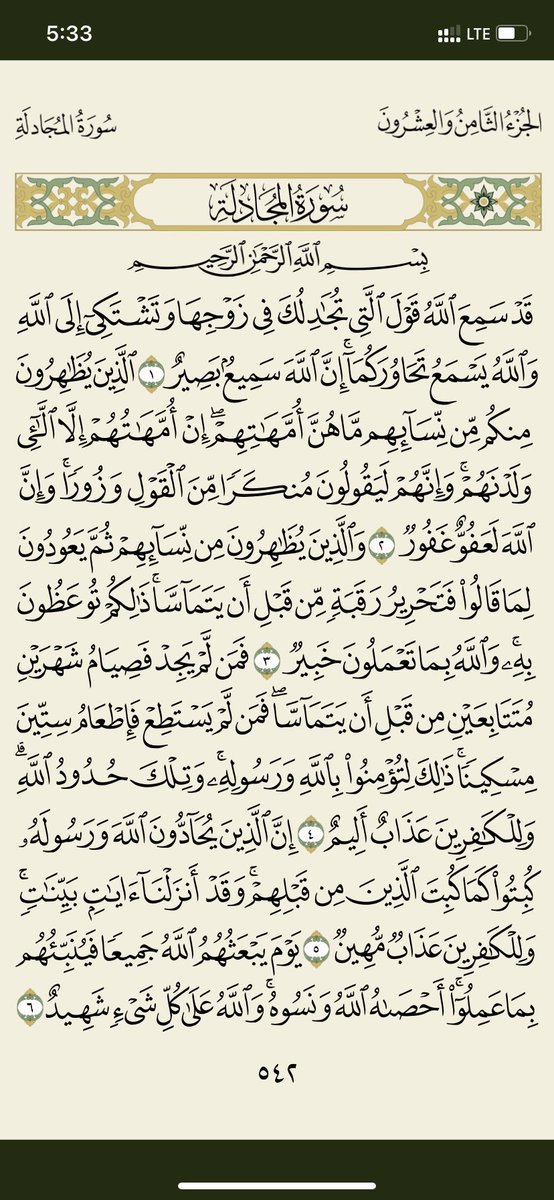 5:33 LTE
الجُزْءُ الثَّامِنُ وَالعِشْرُونَ سُورَةُ المُجَادلَةِ
سُورَةُ المُجَادلَةِ
بِسْمِ ٱللَّهِ ٱلرَّحْمَٰنِ ٱلرَّحِيمِ
قَدْ سَمِعَ ٱللَّهُ قَوْلَ ٱلَّتِي تُجَٰدِلُكَ فِي زَوْجِهَا وَتَشْتَكِيٓ إِلَى ٱللَّهِ
وَٱللَّهُ يَسْمَعُ تَحَاوُرَكُمَآۚ إِنَّ ٱللَّهَ سَمِيعُۢ بَصِيرٌ ١ ٱلَّذِينَ يُظَٰهِرُونَ
مِنكُم مِّن نِّسَآئِهِم مَّا هُنَّ أُمَّهَٰتِهِمْۖ إِنْ أُمَّهَٰتُهُمْ إِلَّا ٱلَّٰٓـِٔي
وَلَدْنَهُمْۚ وَإِنَّهُمْ لَيَقُولُونَ مُنكَرًا مِّنَ ٱلْقَوْلِ وَزُورًاۚ وَإِنَّ
ٱللَّهَ لَعَفُوٌّ غَفُورٌ ٢ وَٱلَّذِينَ يُظَٰهِرُونَ مِن نِّسَآئِهِمْ ثُمَّ يَعُودُونَ
لِمَا قَالُوا۟ فَتَحْرِيرُ رَقَبَةٍ مِّن قَبْلِ أَن يَتَمَآسَّاۚ ذَٰلِكُمْ تُوعَظُونَ
بِهِۦۚ وَٱللَّهُ بِمَا تَعْمَلُونَ خَبِيرٌ ٣ فَمَن لَّمْ يَجِدْ فَصِيَامُ شَهْرَيْنِ
مُتَتَابِعَيْنِ مِن قَبْلِ أَن يَتَمَآسَّاۖ فَمَن لَّمْ يَسْتَطِعْ فَإِطْعَامُ سِتِّينَ
مِسْكِينًاۚ ذَٰلِكَ لِتُؤْمِنُوا۟ بِٱللَّهِ وَرَسُولِهِۦۚ وَتِلْكَ حُدُودُ ٱللَّهِۗ
وَلِلْكَٰفِرِينَ عَذَابٌ أَلِيمٌ ٤ إِنَّ ٱلَّذِينَ يُحَآدُّونَ ٱللَّهَ وَرَسُولَهُۥ
كُبِتُوا۟ كَمَا كُبِتَ ٱلَّذِينَ مِن قَبْلِهِمْۚ وَقَدْ أَنزَلْنَآ ءَايَٰتٍۭ بَيِّنَٰتٍۚ
وَلِلْكَٰفِرِينَ عَذَابٌ مُّهِينٌ ٥ يَوْمَ يَبْعَثُهُمُ ٱللَّهُ جَمِيعًا فَيُنَبِّئُهُم
بِمَا عَمِلُوٓا۟ۚ أَحْصَىٰهُ ٱللَّهُ وَنَسُوهُۚ وَٱللَّهُ عَلَىٰ كُلِّ شَيْءٍ شَهِيدٌ ٦
٥٤٢